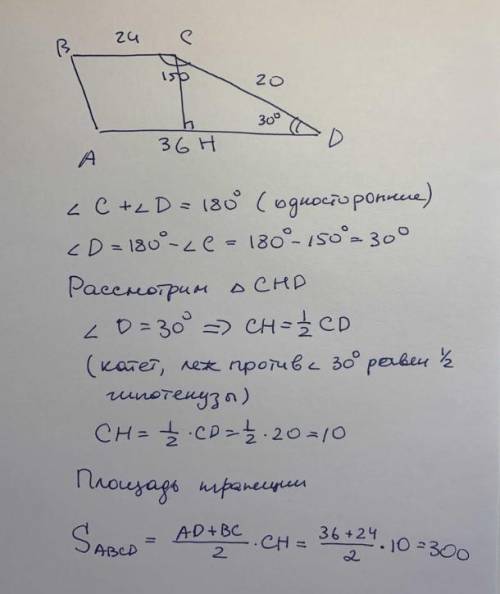 24
B C
150 20
30°
A 36 H D
∠ C + ∠ D = 180° (односторонние)
∠ D = 180° - ∠ C = 180° - 150° = 30°
Рассмотрим △ CHD
∠ D = 30° => CH = 1/2 CD
(катет, леж против ∠ 30° равен 1/2
гипотенузы)
CH = 1/2 · CD = 1/2 · 20 = 10
Площадь трапеции
S ABCD = AD+BC/2 · CH = 36+24/2 · 10 = 300